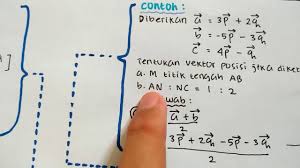 Contoh :
Diberikan a⃗ = 3p⃗ + 2q⃗
b⃗ = -5p⃗ - 3q⃗
c⃗ = 4p⃗ - q⃗
Tentukan vektor posisi jika diket
a. M titik tengah AB
b. AN : NC = 1 : 2
wab :
a⃗ + b⃗
2
3p⃗ + 2q⃗ - 5p⃗ - 3q⃗
2